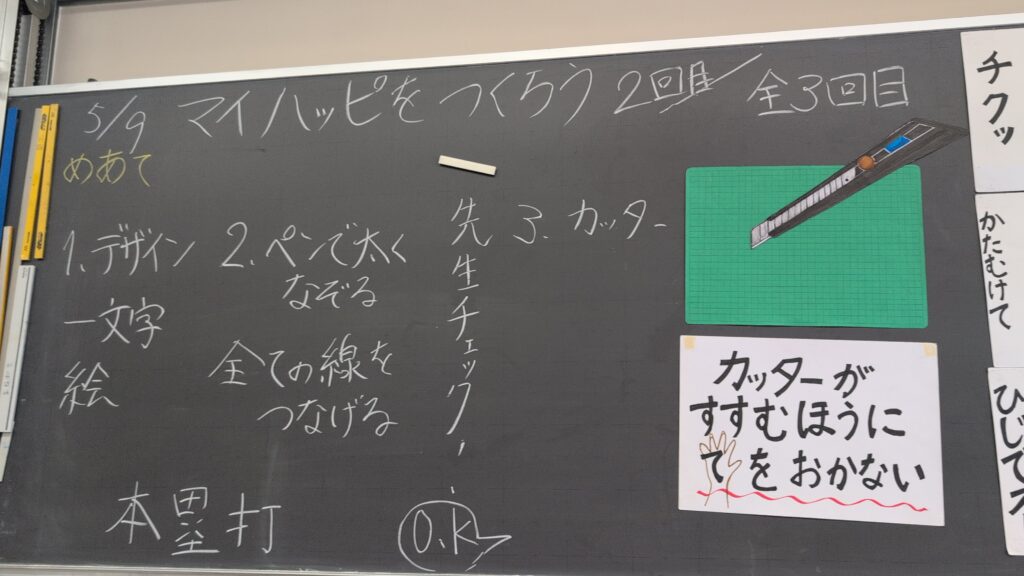 5/9 マイハッピをつくろう 2回目/全3回目
めあて
1.デザイン
一文字
絵
2.ペンで太く
なぞる
全ての線を
つなげる
先生チェック!
3.カッター
本塁打
O.K
カッターが
すすむほうに
てをおかない
チクッ
かたむけて
ひじで